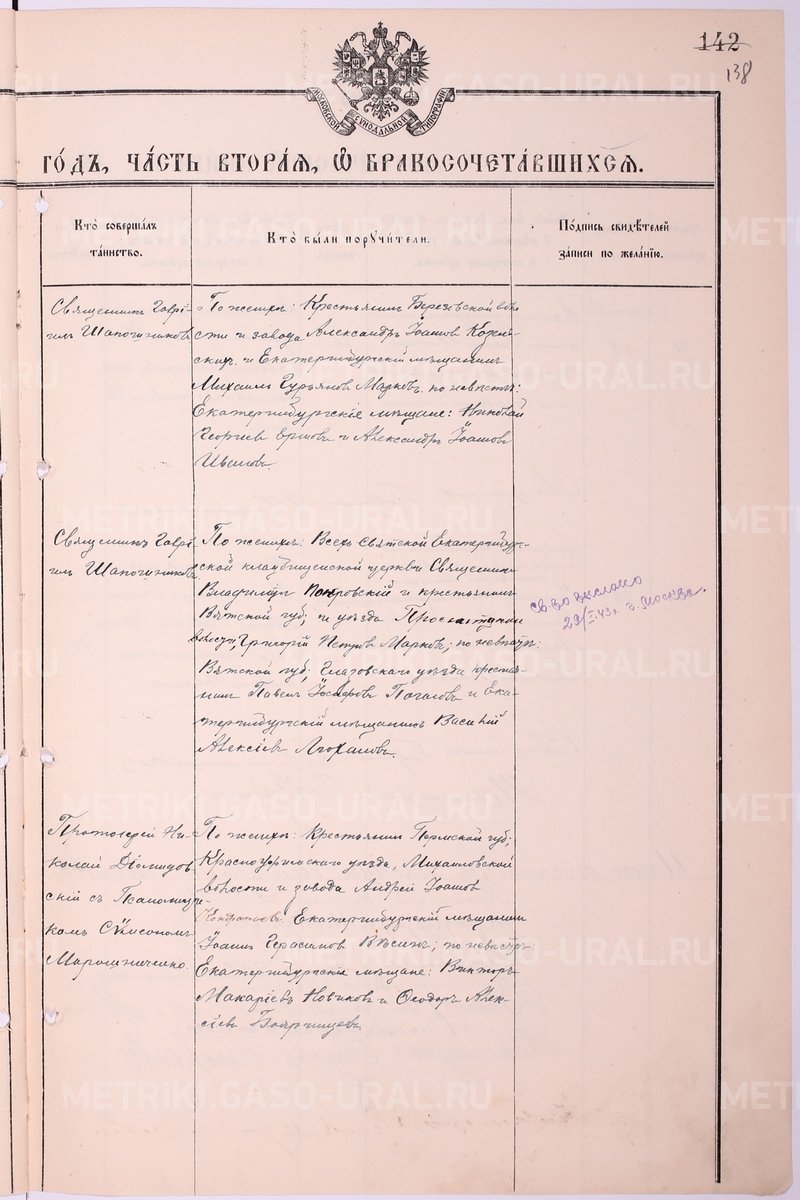 142
138
МОСКОВСКОЙ СѴНОДАЛЬНОЙ ТИПОГРАФІИ
ГО́ДЪ, ЧА́СТЬ ВТОРА́Я, Ѡ БРАКОСОЧЕТА́ВШИХСЯ.
Кто̀ соверша́лъ
та́инство.
Кто̀ бы́ли порꙋчи́тели.
По́дпись свидѣ́телей
за́писи по жела́нїю.
Священникъ Гаврі-
илъ Шапочниковъ
По женихѣ: Крестьянинъ Березовской воло-
сти и завода Александръ Іоанновъ
и Екатеринбургскій мѣщанинъ
Михаилъ Гурьяновъ Марковъ. по невѣстѣ:
Екатеринбургскіе мѣщане: Николай
Георгіевъ Ершовъ и Александръ Іоанновъ
Ивановъ.
Священникъ Гаврі-
илъ Шапочниковъ
По женихѣ: Всехъ Святской Екатеринбург-
ской кладбищенской церкви Священникъ
Владиміръ Покровскій и крестьянинъ
Вятской губ; и уѣзда
волости, Григорій Петровъ Марковъ; по невѣстѣ:
Вятской губ; Глазовскаго уѣзда крестья-
нинъ Павелъ и Ека-
теринбургскій мѣщанинъ Василій
Алексіевъ
св-во выслано
29/I-43 г. г. Москва.
Протоіерей Ни-
колай Діомидов-
скій съ Псаломщи-
комъ Сѵмеономъ
Мирошниченко
По женихѣ: Крестьянинъ Пермской губ;
Красноуфимскаго уѣзда, Михайловской
волости и завода Андрей Іоанновъ
Кондратьевъ. Екатеринбургскій мѣщанинъ
Іоаннъ Герасимовъ по невѣстѣ:
Екатеринбургскіе мѣщане: Викторъ
Макаріевъ Новиковъ и Ѳеодоръ Алек-
сіевъ
METRIKI.GASO-URAL.RU